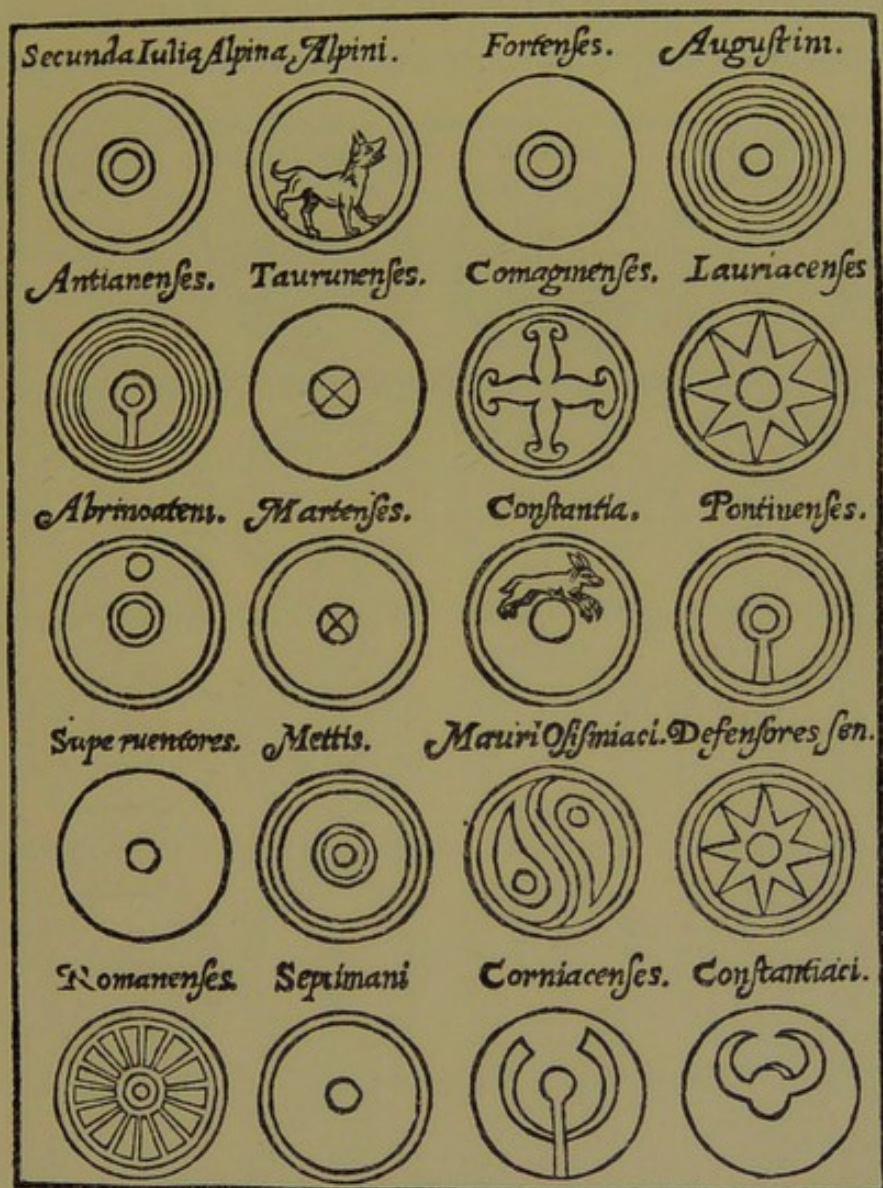 Secunda Iulia Alpina, Alpini. Fortenſes. Auguſtini.
Antianenſes. Taurunenſes. Comaginenſes. Lauriacenſes
Abrincateni. Martenſes. Conſtantia. Pontinenſes.
Superuentores. Mettis. Mauri Oſiſmiaci. Defenſores ſen.
Romanenſes. Septimani Corniacenſes. Conſtantiaci.